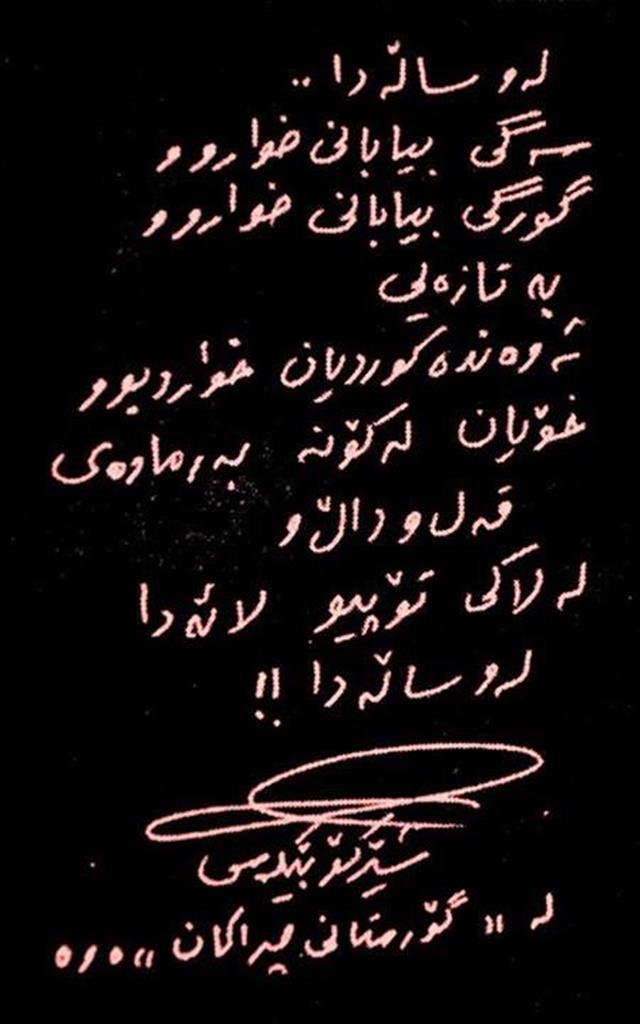 لەو ساڵە دا ..
سەگی بیابانی خواروو
گورگی بیابانی خواروو
بە تازەیی
ئەوەندە کوردیان خواردبوو
خۆیان لە کۆنە بەرماوەی
قەل و داڵ و
لە لاکی تۆپیو لائەدا
لەو ساڵە دا !!
شێرکۆ بێکەسی
لە « گۆرستانی چراکان » ەوە